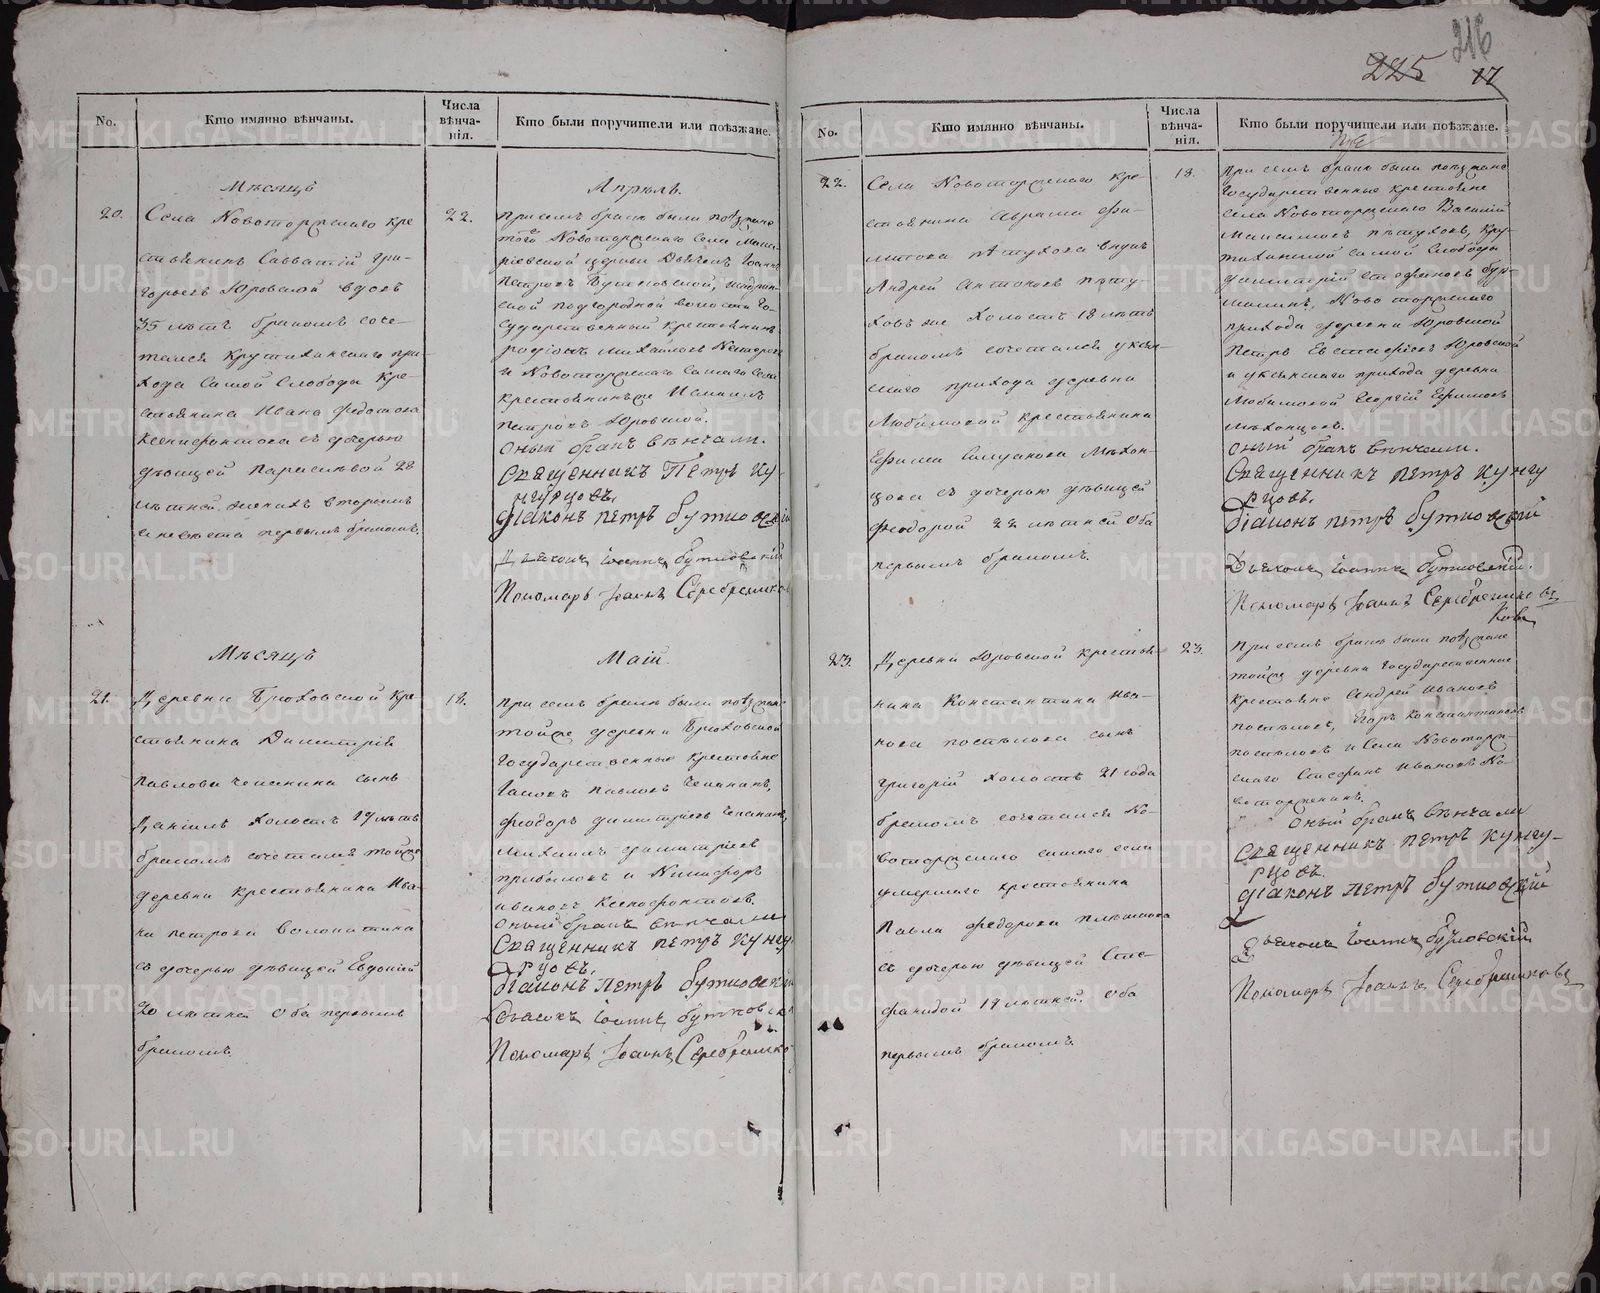 216
225 17
No.
Кто имянно вѣнчаны.
Числа вѣнча-нія.
Кто были поручители или поѣзжане.
Мѣсяцъ
Апрѣль.
20.
Села Новоторжскаго кре
стьянинъ Савватій Гри-
горьевъ Юровской вдовъ
35 лѣтъ бракомъ соче-
тался Крутихинскаго при-
хода самой Слободы кре-
стьянина Ивана Федотова
Ксенофонтова съ дочерью
дѣвицей Парасковой 28
лѣтней. женихъ вторымъ
а невѣста первымъ бракомъ.
22.
При семъ бракѣ были поѣзжане
того Новоторжскаго села
церкви Дьячекъ Іоаннъ
Петровъ
ской подгородной волости Го-
сударственный крестьянинъ
Родіонъ Михайловъ
и Новоторжскаго самаго села
крестьянинъ
Петровъ Юровской.
Оный бракъ вѣнчали.
Священникъ Петръ Ку
нгурцовъ.
Діаконъ Петръ Бутковскій
Дьячекъ Іоаннъ Бутковскій
Пономарь Іоаннъ Серебренико
Мѣсяцъ
Маій.
21.
Деревни Брюховской кре-
стьянина Димитрія
Павлова Чепчнина сынъ
Даніилъ холостъ 19 лѣтъ
бракомъ сочетался тойже
деревни крестьянина Ива-
на Петрова Волокитина
съ дочерью дѣвицей Евдокіей
20 лѣтней Оба первымъ
бракомъ.
18.
При семъ бракѣ были поѣзжане
тойже деревни Брюховской
Государственные крестьяне
Павловъ
Феодоръ Димитріевъ
Михаилъ Димитріевъ
и Никифоръ
Ивановъ Ксенофонтовъ.
Оный бракъ вѣнчали
Священникъ Петръ Кунгу
рцовъ.
Діаконъ Петръ Бутковскій
Дьячокъ Іоаннъ Бутковск
Пономарь Іоаннъ Серебренико
No.
Кто имянно вѣнчаны.
Числа вѣнча-нія.
Кто были поручители или поѣзжане.
22.
Села Новоторжскаго кре-
стьянина Аврама
Пѣтухова внукъ
Андрей Антоновъ Пѣту-
ховъ же холостъ 18 лѣтъ
бракомъ сочетался Уксян-
скаго прихода деревни
Любимовой крестьянина
Ефима Силуанова Мѣхон-
цова съ дочерью дѣвицей
Феодорой 22 лѣтней Оба
первымъ бракомъ.
18.
При семъ бракѣ были поѣзжане
Государственные крестьяне
села Новоторжскаго Василій
Максимовъ Пѣтуховъ, Кру-
тихинской самой Слободы
Димитрій Стефановъ
Новоторжскаго
прихода деревни Юровской
Петръ Евстафіевъ Юровской
и Уксянскаго прихода деревни
Любимовой Георгій Ефимовъ
Мѣхонцовъ.
Оный бракъ вѣнчали.
Священникъ Петръ Кунгу
рцовъ.
Діаконъ Петръ Бутковскій
Дьячокъ Іоаннъ Бутковскій.
Пономарь Іоаннъ Серебренико въ
ковъ
23.
Деревни Юровской крестья-
нина Константина Ива-
нова Постѣлова сынъ
Григорій холостъ 21 года
бракомъ сочетался Но-
воторжскаго самаго села
умершаго крестьянина
Павла Федорова
съ дочерью дѣвицей Сте-
фанидой 19 лѣтней. Оба
первымъ бракомъ.
23.
При семъ бракѣ были поѣзжане
тойже деревни Государственные
крестьяне Андрей Ивановъ
Постѣловъ, Егоръ Константиновъ
Постѣловъ и села Новоторж-
скаго Стефанъ Ивановъ Но-
воторженинъ.
Оный бракъ вѣнчали
Священникъ Петръ Кунгу-
рцовъ.
Діаконъ Петръ Бутковскій
Дьячокъ Іоаннъ Бутковскій
Пономарь Іоаннъ Серебрениковъ
METRIKI.GASO-URAL.RU